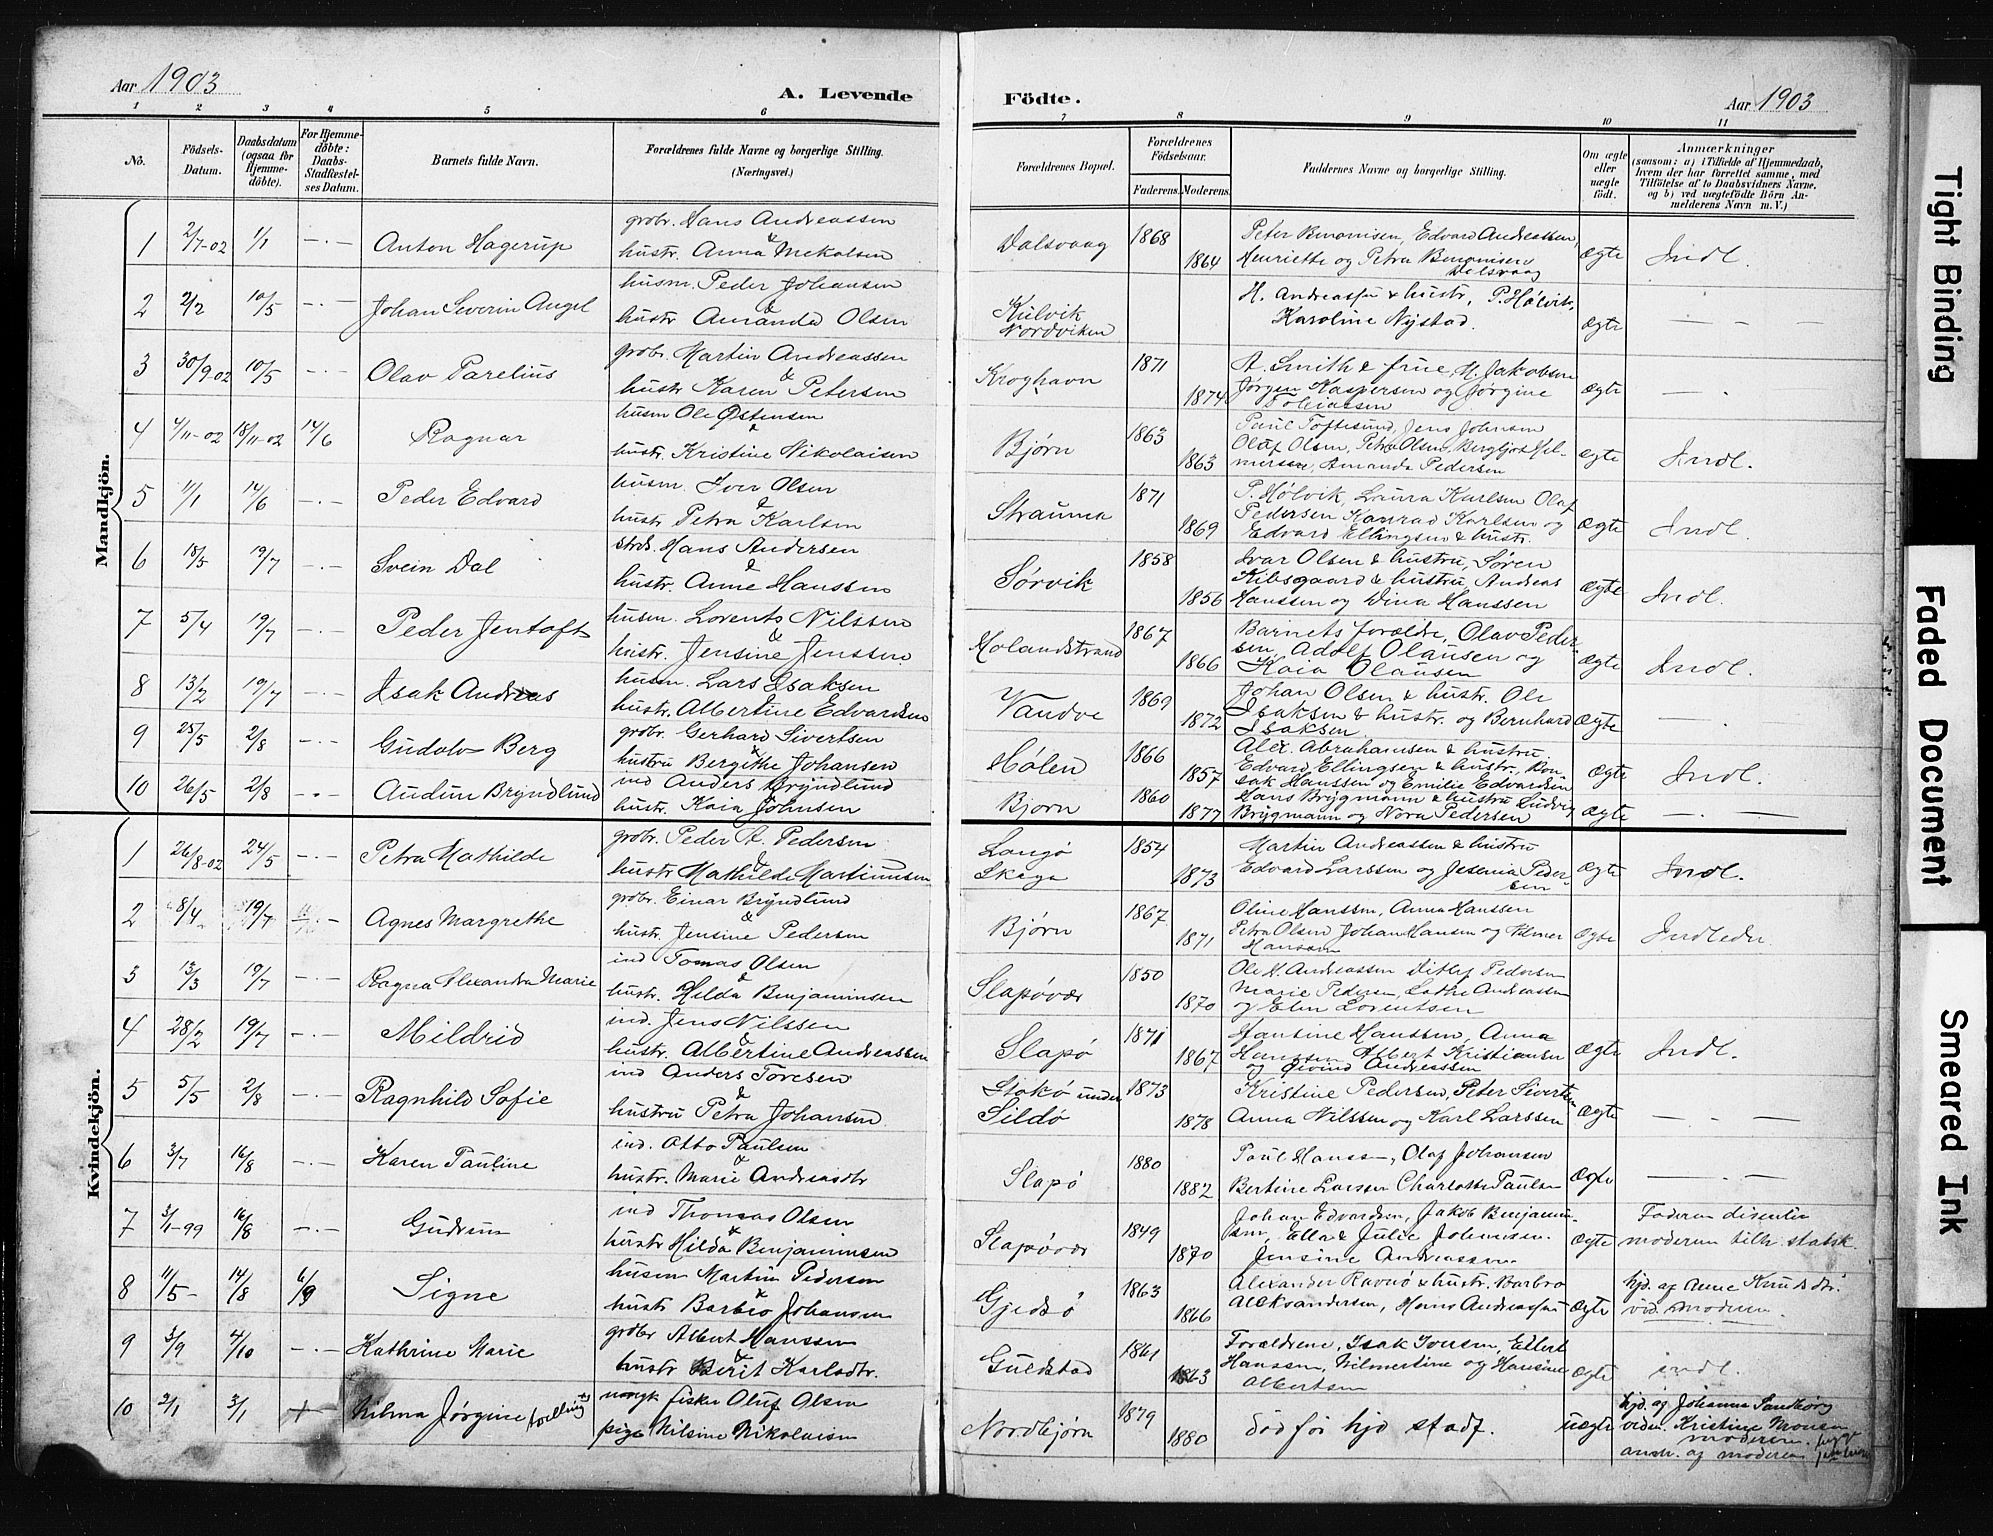 Aar 1903
A. Levende
Födte.
Aar 1903
1 2 3 4 5 6 7 8 9 10 11
No.
Födsels-Datum.
Daabsdatum (ogsaa for Hjemmedöbte).
For Hjemmedöbte: Daabs-Stadfæstelses Datum.
Barnets fulde Navn.
Forældrenes fulde Navne og borgerlige Stilling. (Næringsvei.)
Forældrenes Bopæl.
Forældrenes Födselsaar.
Faderens. Moderens.
Faddernes Navne og borgerlige Stilling.
Om ægte eller uægte födt.
Anmærkninger
(saasom: a) i Tilfælde af Hjemmedaab, hvem der har forrettet samme, med Tilföielse af to Daabsvidners Navne, og b) ved uægtefödte Börn Anmelderens Navn m. V.)
Mandkjön.
1 2/7-02 1/1 -.- Anton Hagerup
grbr. Hans Andreassen &
hustr. Anna Mekalsen
Dalsvaag 1868 1864
Peter Benonisen, Edvard Andreassen,
Henriette og Petra Benonisen
Dalsvaag
ægte Indl.
2 2/2 10/5 -.- Johan Severin Angel
husm. Peder Johansen &
hustr. Amanda Olsen
Nordviken
H. Andreassen & hustr, P. Hølvik,
Karoline Nystad.
ægte
3 30/9-02 10/5 -.- Olav Parelius
grbr. Martin Andreassen &
hustr Karen Petersen
Kroghavn 1871 1874
A. Smith & frue, M. Jakobsen
Jørgen Kaspersen og Jørgine
Tobiassen
ægte -.-
4 4/11-02 18/11-02 14/6 Ragnar
husm Ole Østensen
hustr. Kristine Nikolaisen
Bjørn 1863 1863
Paul Toftesund, Jens Johnsen
Olaf Olsen, Petra Olsen,
Amanda Pedersen
ægte Indl.
5 1/1 14/6 -.- Peder Edvard
husm. Iver Olsen &
hustr Petra Karlsen
Strauma 1871 1869
P. Hølvik, Laura Karlsen Olaf
Pedersen Konrad Karlsen og
Edvard Ellingsen & hustr.
ægte Indl.
6 18/5 19/7 -.- Svein Dal
Hans Andersen &
hustr. Anne Hanssen
Sørvik 1858 1856
Ivar Olsen & hustru, Søren
Kibsgaard & hustru, Andreas
Hanssen og Dina Hanssen
ægte Indl.
7 5/4 19/7 -.- Peder Jentoft
husm. Lorents Nilssen &
hustr. Jensine Jenssen
Molandstrand 1867 1866
Barnets forældre, Olav Peder-
sen, Adolf Olausen og
Kaia Olausen
ægte Indl.
8 13/2 19/7 -.- Isak Andreas
husm. Lars Isaksen
hustr. Albertine Edvardsen
Vandve 1869 1872
Johan Olsen & hustr. Ole
Isaksen & hustr. og Bernhard
Isaksen.
ægte -.-
9 25/5 2/8 -.- Gudolv Berg
grbr. Gerhard Sivertsen &
hustru Bergithe Johansen
Hølen 1866 1857
Alex. Abrahamsen & hustru
Edvard Ellingsen & hustr, Bon-
sak Hanssen og Emilie Edvardsen
ægte Indl.
10 26/5 2/8 -.- Audun Bryndlund
ind Anders Bryndlund &
hustr. Kaia Johnsen
Bjørn 1860 1877
Hans Brygmann & hustru Ludvig
Brygmann og Nora Pedersen
ægte -.-
Kvindekjön.
1 26/8-02 24/5 -.- Petra Mathilde
grbr. Peder A. Pedersen &
hustr Mathilde Martinussen
Langø
Skega 1854 1873
Martin Andreassen & hustru
Edvard Larssen og Jesenia Peder-
sen
ægte Indl.
2 8/4 19/7 Agnes Margrethe
grbr. Einar Bryndlund &
hustr. Jensine Pedersen
Bjørn 1867 1871
Oline Hanssen, Anna Hanssen
Petra Olsen Johan Hansen og Hilmer
Hanssen
ægte Indleder
3 13/3 19/7 -.- Ragna Alexandra Marie
ind Tomas Olsen &
hustr. Hilda Benjaminsen
Slapøvær 1850 1870
Ole N. Andreassen Ditlef Pedersen
Marie Pedersen, Lathe Andreassen
og Elen Lorentsen
4 28/2 19/7 -.- Mildrid
ind. Jens Nilssen &
hustr. Albertine Andreassen
Slapø 1871 1867
Hansine Hanssen, Anna
Hanssen Albert Kristiansen
og Øivind Andreassen
ægte Indl.
5 5/5 2/8 -.- Ragnhild Sofie
ind Anders Toresen &
hustru Petra Johansen
Stokø under
Sildø 1873 1878
Kristine Pedersen, Peter Sivertsen
Anna Nilssen og Karl Larssen
ægte -.-
6 3/7 16/8 -.- Karen Pauline
ind. Otto Paulsen &
hustr. Marie Andreasdtr
Slapø 1880 1882
Paul Hanss-, Olaf Johansen
Bertine Larsen Charlotte Paulsen
Ægte -.-
7 3/1-99 16/8 -.- Gudrun
ind Thomas Olsen &
hustr Hilda Benjaminsen
Slapøvær 1849 1870
Johan Edvardsen, Jakob Benjamin-
sen, Ella & Julie Johansen.
Jensine Andreassen
ægte Faderen disenter
moderen tilh. statsk.
8 11/5 14/8 6/9 Signe
husm Martin Pedersen &
hustr Barbro Johansen
Gjedsø 1863 1866
Alexander Ravnø & hustr. Barbro
Aleksandersen, Hans Andreassen
ægte hjd. af Anne Knudsdtr.
vid. moderen.
9 3/9 4/10 -.- Kathrine Marie
grbr Albert Hanssen &
hustr Berit Karlsdtr.
Guldstad 1861 1863
Forældrene, Isak Iversen, Ellert
Hanssen, Hilmertine og Hansine
Albertsen
ægte indl.
10 2/1 3/1 + Hilma Jørgine
ungk fisker Oluf Olsen
pige Nilsine Nikolaisen
Nordbjørn 1879 1880
død før hjd stadf.
uægte hjd. af Johanna Sandberg
viden. Kristine Monsen
moderen.
anm. af moderen
Tight Binding
Faded Document
Smeared Ink